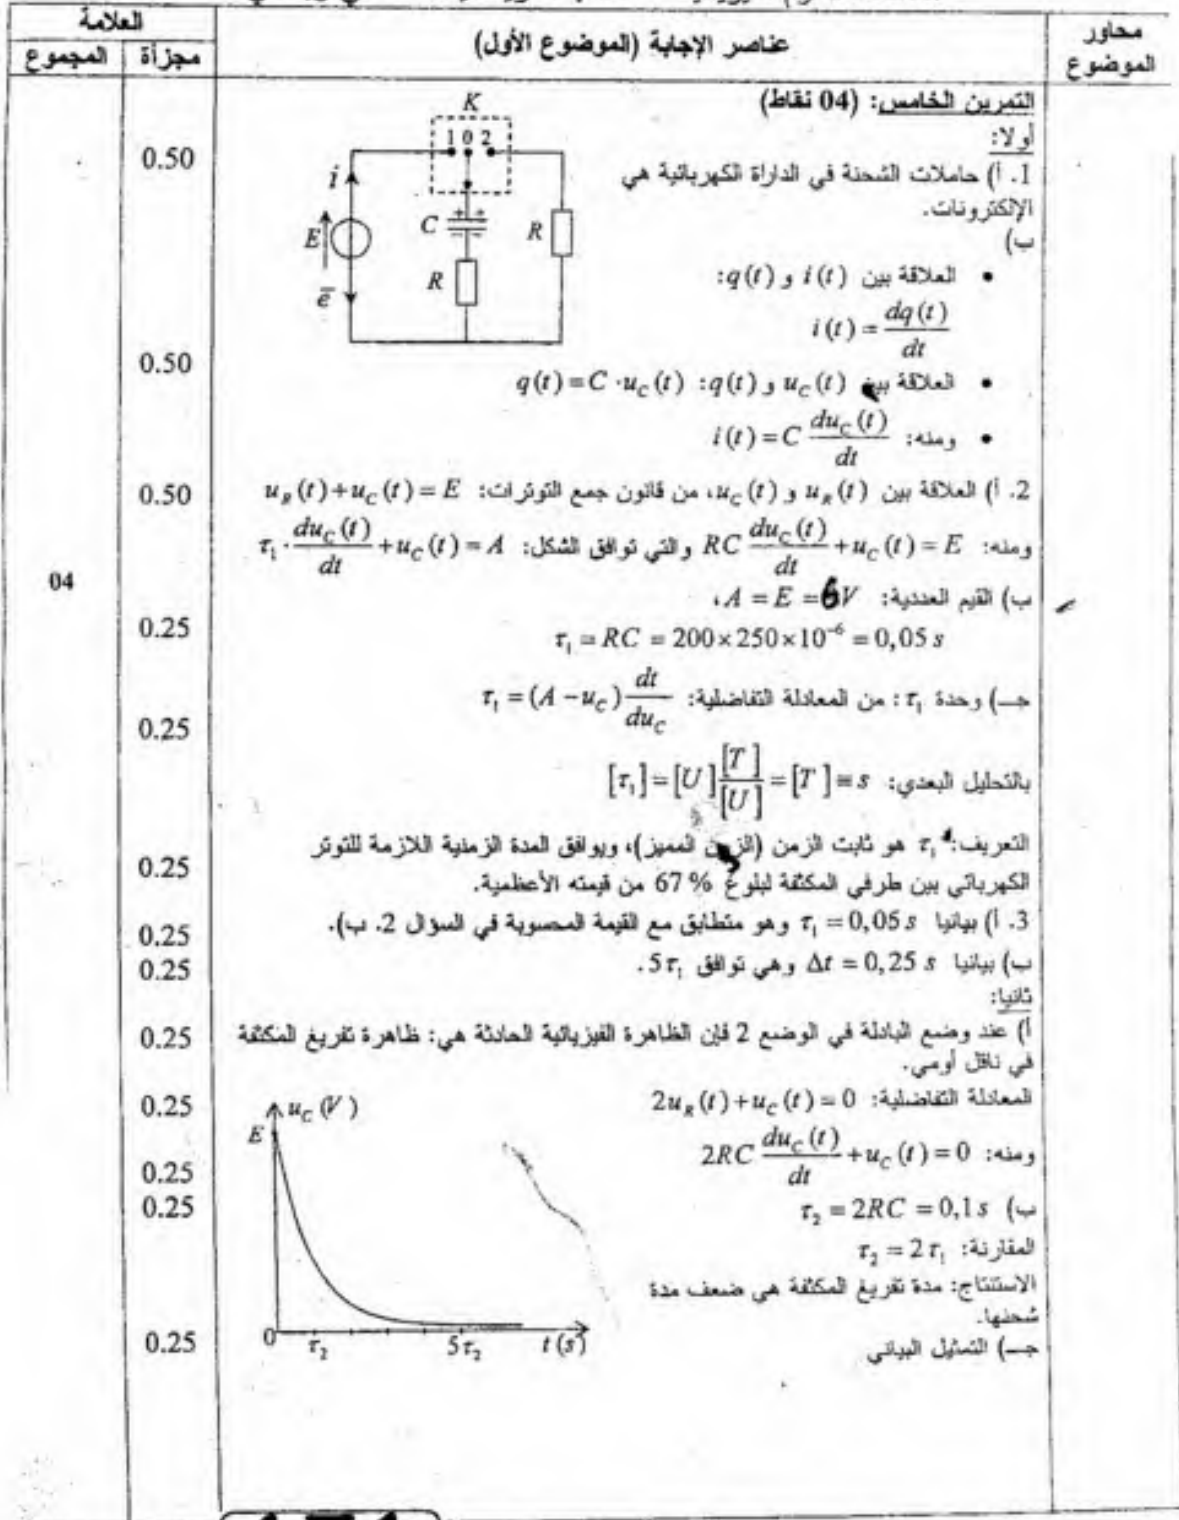 العلامة
محاور الموضوع
عناصر الإجابة (الموضوع الأول)
مجزأة
المجموع
التمرين الخامس: (04 نقاط)
أولا:
1. أ) حاملات الشحنة في الداراة الكهربائية هي
الإلكترونات.
0.50
K
1 0 2
i
E
C
R
R
e̅
ب)
• العلاقة بين i(t) و q(t):
i(t) = dq(t)/dt
0.50
• العلاقة بين u_C(t) و q(t): q(t) = C · u_C(t)
• ومنه: i(t) = C du_C(t)/dt
2. أ) العلاقة بين u_R(t) و u_C(t)، من قانون جمع التوترات: u_R(t) + u_C(t) = E
0.50
ومنه: RC du_C(t)/dt + u_C(t) = E والتي توافق الشكل: τ₁ · du_C(t)/dt + u_C(t) = A
04
ب) القيم العددية: A = E = 6V ،
0.25
τ₁ = RC = 200×250×10⁻⁶ = 0,05 s
جـ) وحدة τ₁: من المعادلة التفاضلية: τ₁ = (A − u_C) dt/du_C
0.25
بالتحليل البعدي: [τ₁] = [U] [T]/[U] = [T] ≡ s
التعريف: τ₁ هو ثابت الزمن (الزمن المميز)، ويوافق المدة الزمنية اللازمة للتوتر
0.25
الكهربائي بين طرفي المكثفة لبلوغ 67 % من قيمته الأعظمية.
3. أ) بيانيا τ₁ = 0,05 s وهو متطابق مع القيمة المحسوبة في السؤال 2. ب).
0.25
ب) بيانيا Δt = 0,25 s وهي توافق 5τ₁.
0.25
ثانيا:
أ) عند وضع البادلة في الوضع 2 فإن الظاهرة الفيزيائية الحادثة هي: ظاهرة تفريغ المكثفة
0.25
في ناقل أومي.
المعادلة التفاضلية: 2u_R(t) + u_C(t) = 0
0.25
ومنه: 2RC du_C(t)/dt + u_C(t) = 0
0.25
ب) τ₂ = 2RC = 0,1 s
0.25
المقارنة: τ₂ = 2τ₁
الاستنتاج: مدة تفريغ المكثفة هي ضعف مدة
شحنها.
جـ) التمثيل البياني
0.25
u_C (V)
E
0
τ₂
5τ₂
t (s)